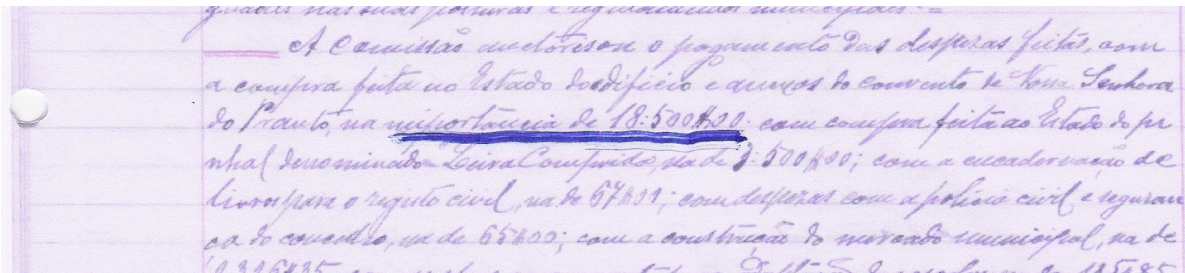 gnadas nas suas posturas e regulamentos municipaes.=
A Comissão auctorisou o pagamento das despezas feitas, com
a compra feita ao Estado do edificio e anexos do convento de Nossa Senhora
do Pranto, na importancia de 18:500$00; com compra feita ao Estado do pi
nhal denominado Leira Comprida, na de 3:500$00; com a encadernação de
livros para o registo civil, na de 67$00; com despezas com a policia civil e seguran
ça do concelho, na de 65$00; com a construção do mercado municipal, na de